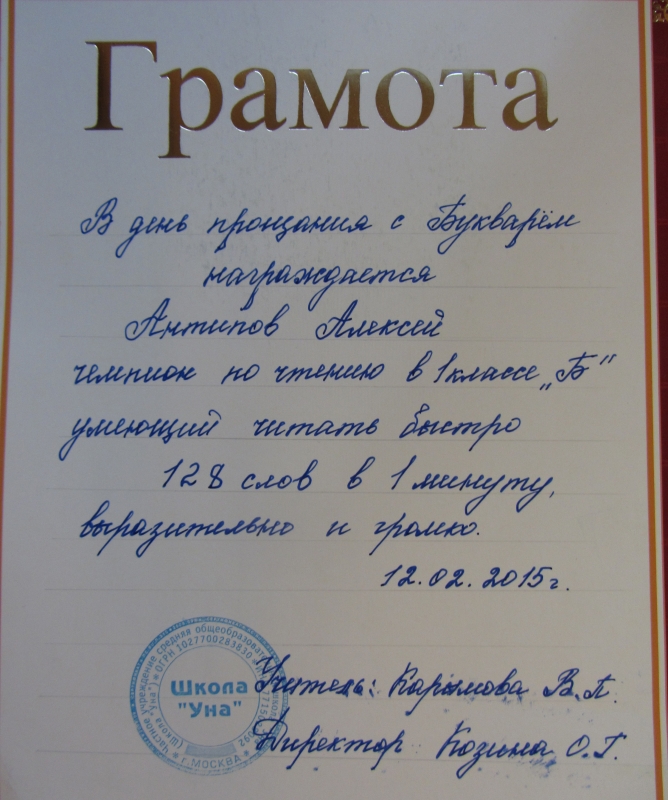 Грамота
В день прощания с Букварём
награждается
Антипов Алексей
чемпион по чтению в 1 классе „Б"
умеющий читать быстро
128 слов в 1 минуту,
выразительно и громко.
12.02.2015г.
Учитель: Карымова В.П.
Директор Козина О.Г.
Частное учреждение средняя
(Школа "Уна") * ОГРН 1027700283830
Школа
"Уна"
* г. МОСКВА *